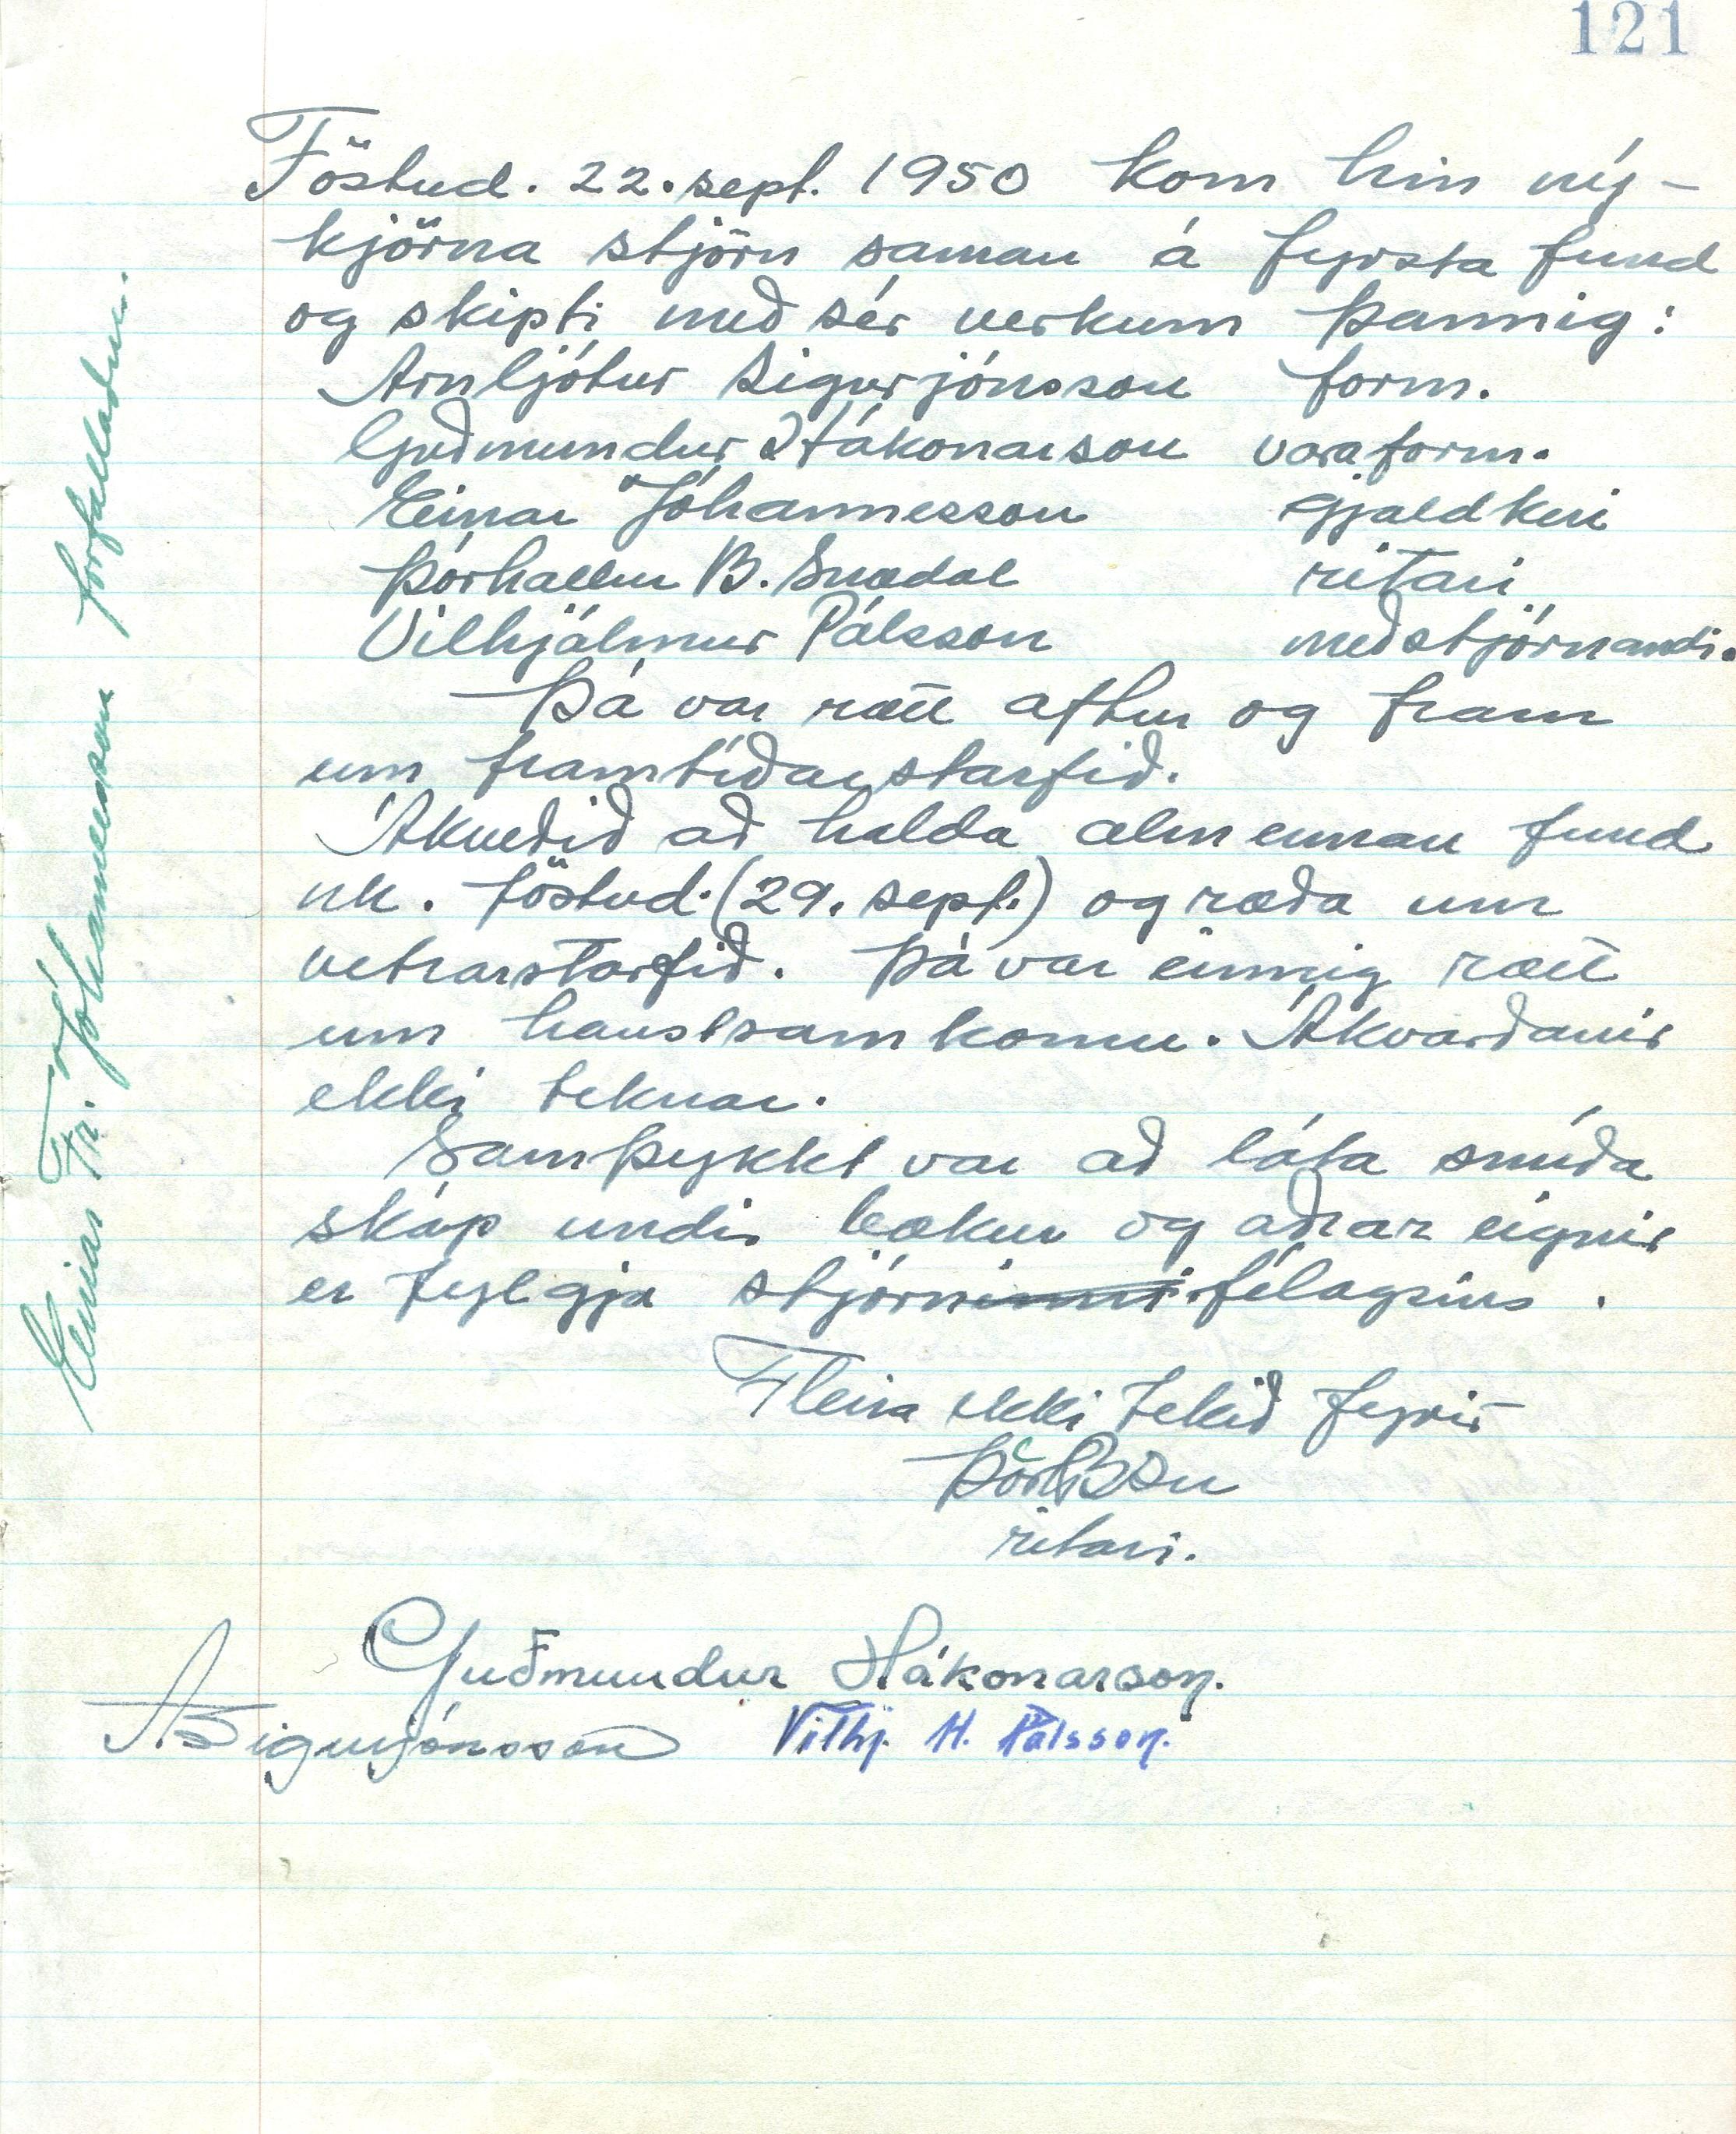 121
Föstud. 22. sept. 1950 kom hin ný-
kjörna stjörn saman á fyrsta fund
og skipti með sér verkum þannig:
Arnljótur Sigurjónsson form.
Guðmundur Hákonarson varaform.
Einar Jóhannesson gjaldkeri
Þórhallur B. Snædal ritari
Vilhjálmur Pálsson meðstjórnandi.
Þá var rætt aftur og fram
um framtíðarstarfið.
Ákveðið að halda almennan fund
nk. föstud. (29. sept.) og ræða um
vetrarstarfið. Þá var einnig rætt
um haustsamkomu. Ákvarðanir
ekki teknar.
Samþykkt var að láta smíða
skáp undir bækur og aðrar eignir
er fylgja stjórninni félagsins.
Fleira ekki tekið fyrir
ÞórhBSn
ritari.
Guðmundur Hákonarson.
ASigurjónsson Vilhj. H. Pálsson.
Einar Fr. Jóhannesson forfallaður.